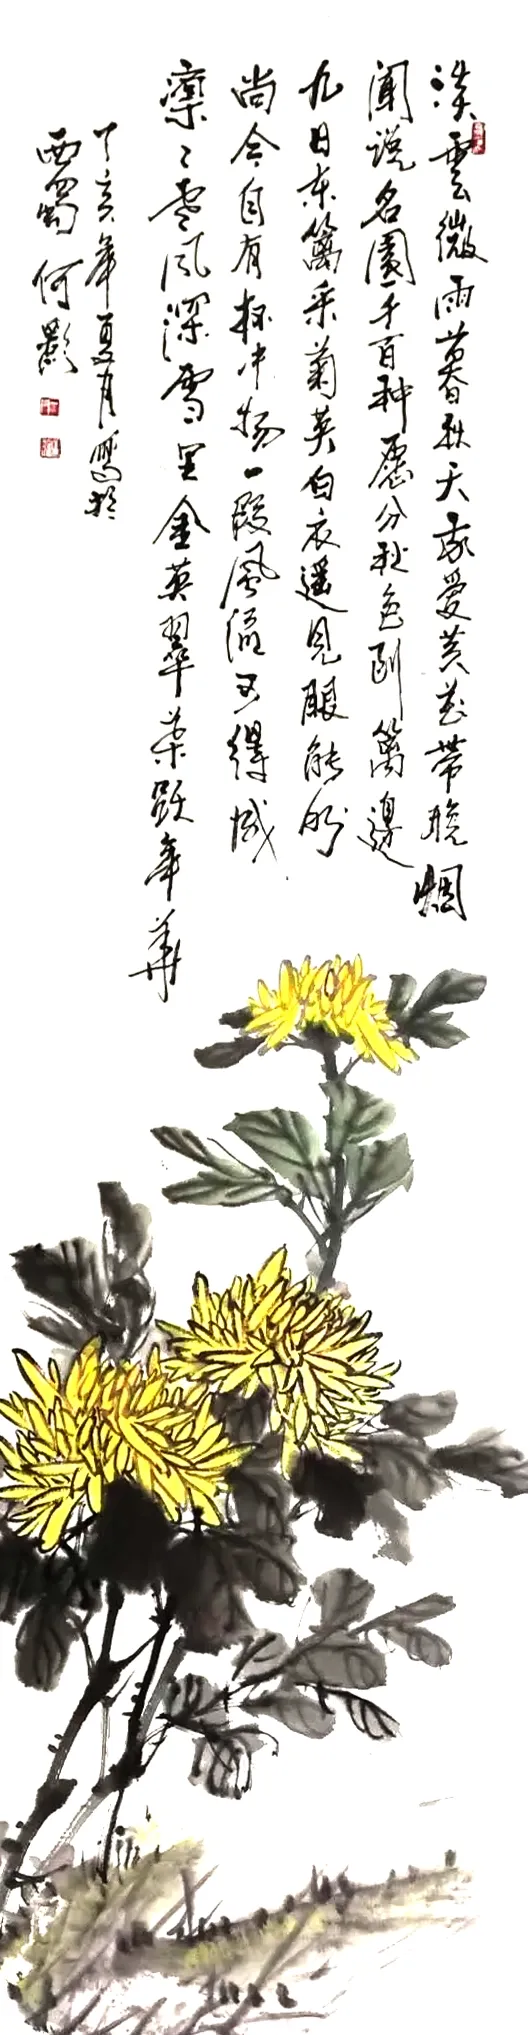 淡雲微雨暮秋天我愛黃花帶晚烟
聞說名園千百種歷分秋色到籬邊
九日東籬采菊英白衣遥見眼能明
尚令自有杯中物一段風流可得成
凜凜霜風深雪里金英翠葉跃年華
丁亥年夏月寫於
西蜀何影